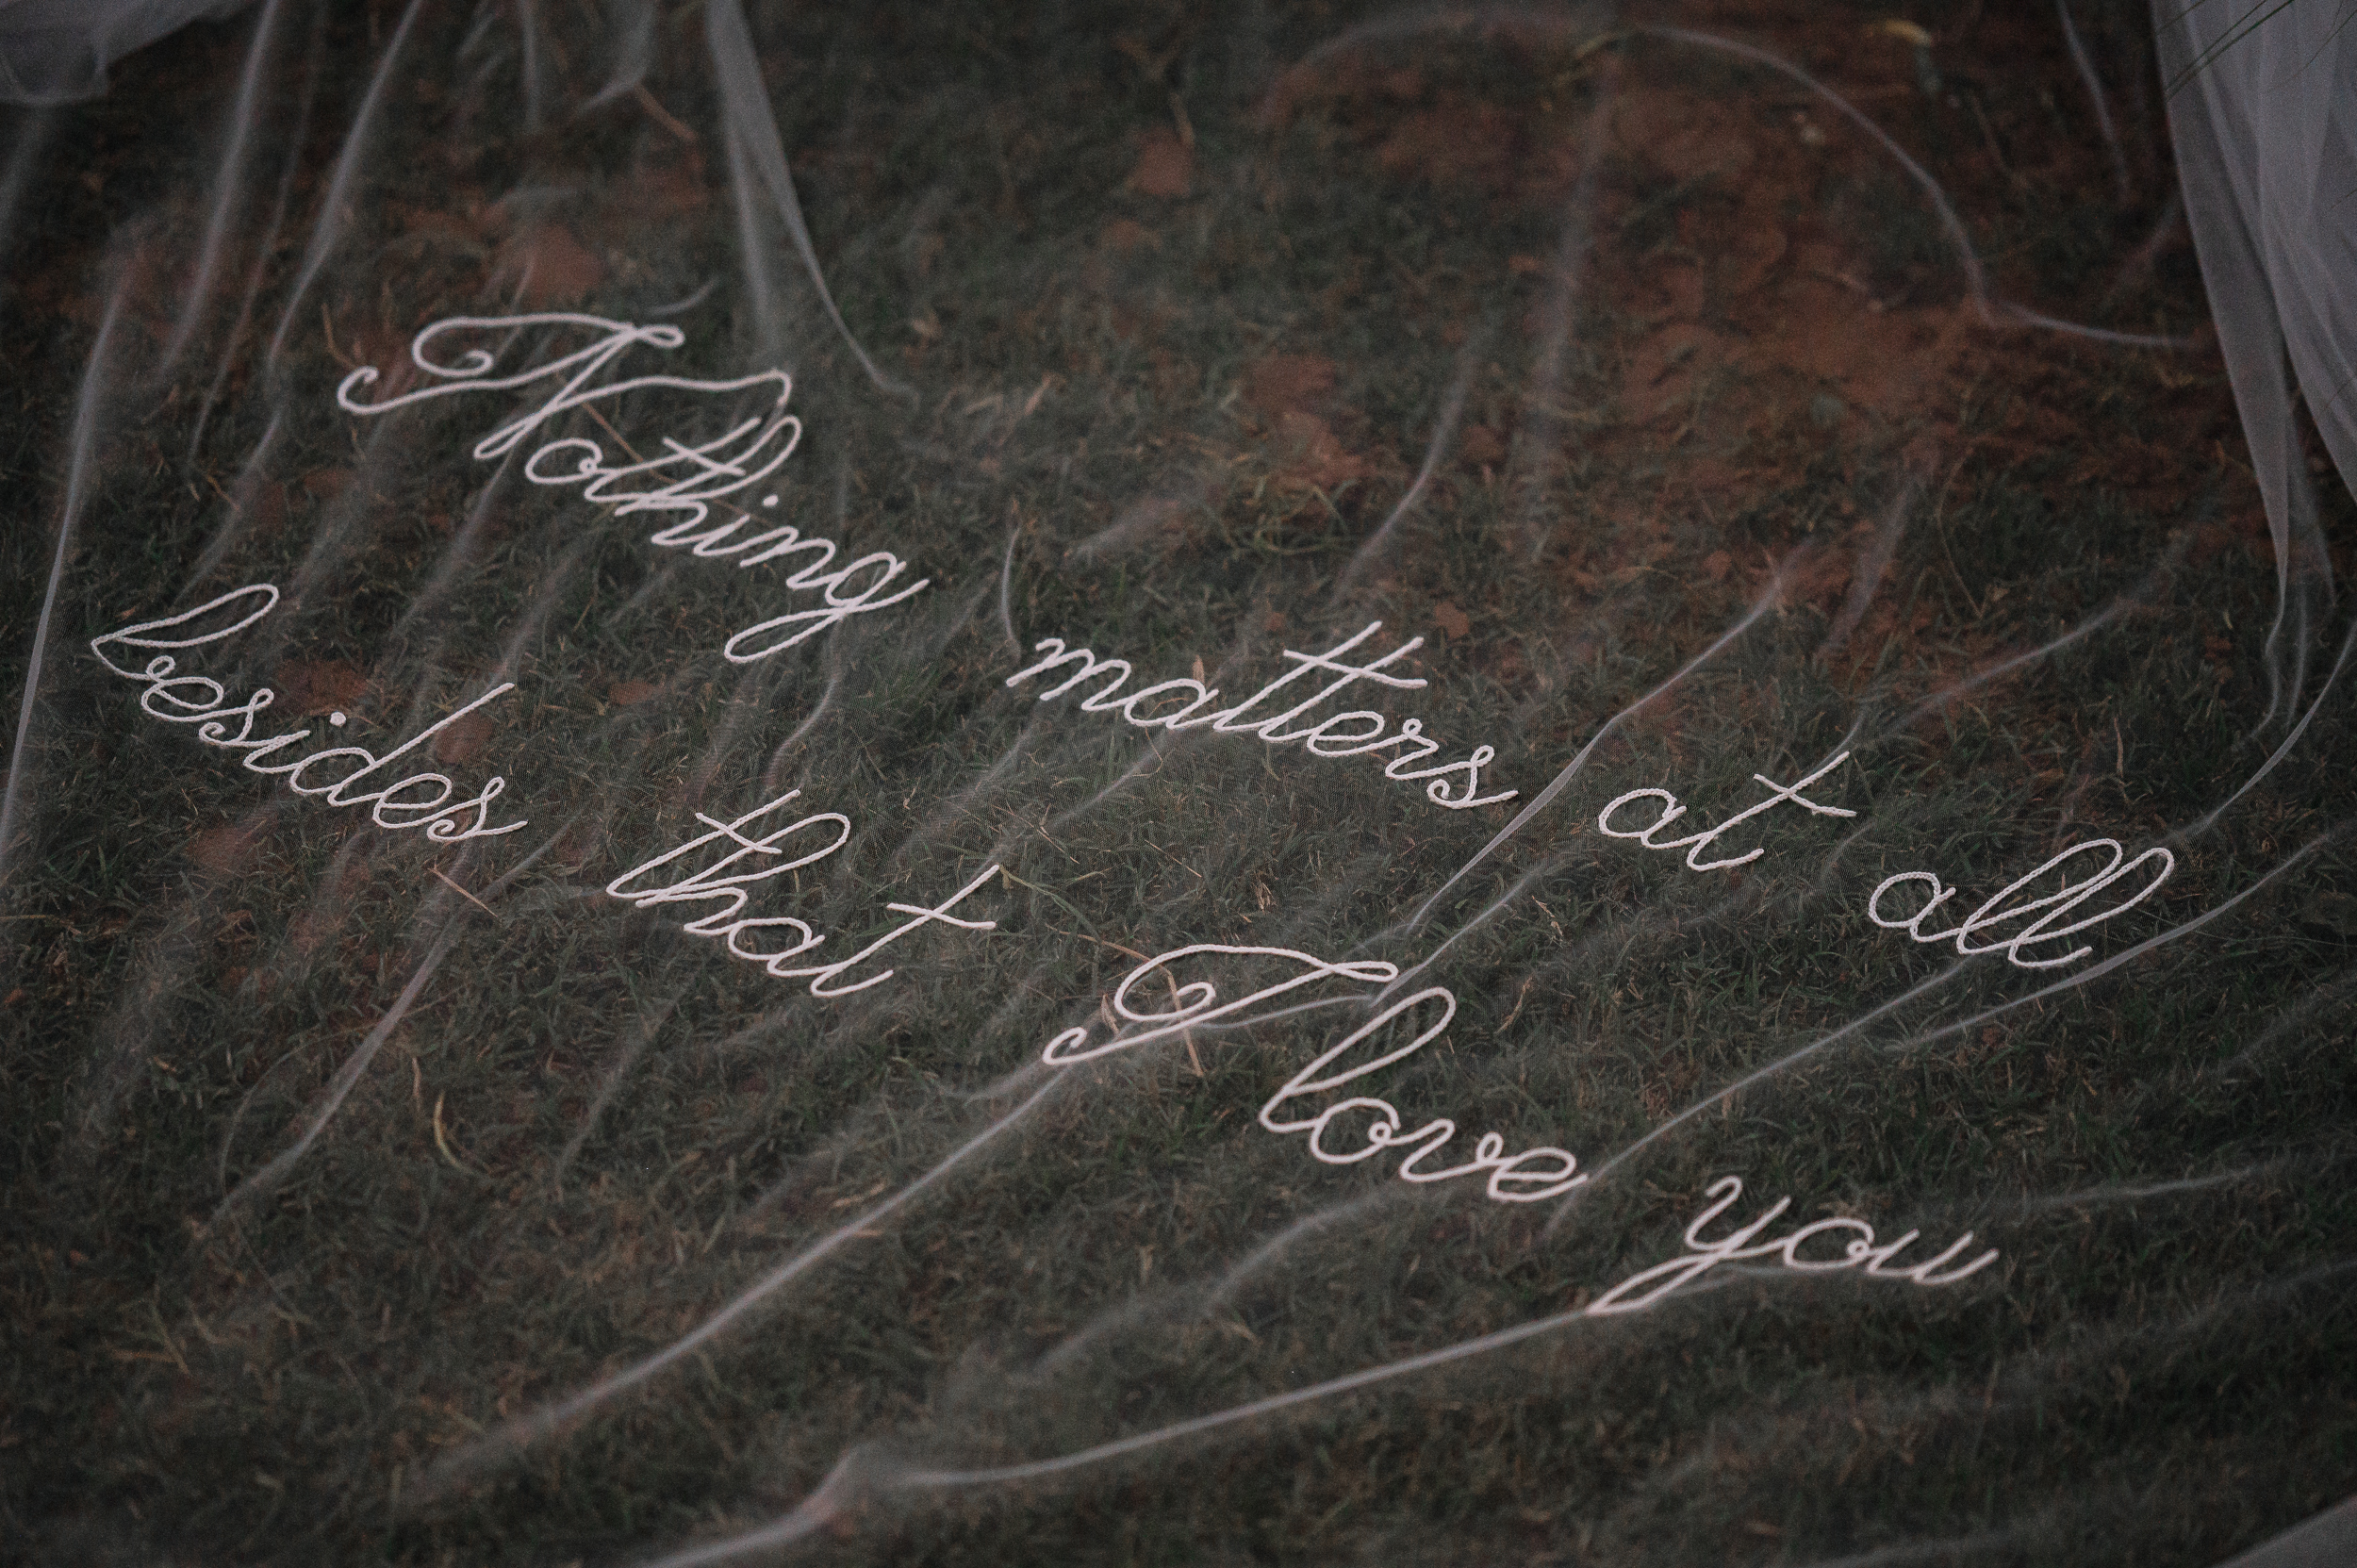 Nothing matters at all
besides that I love you